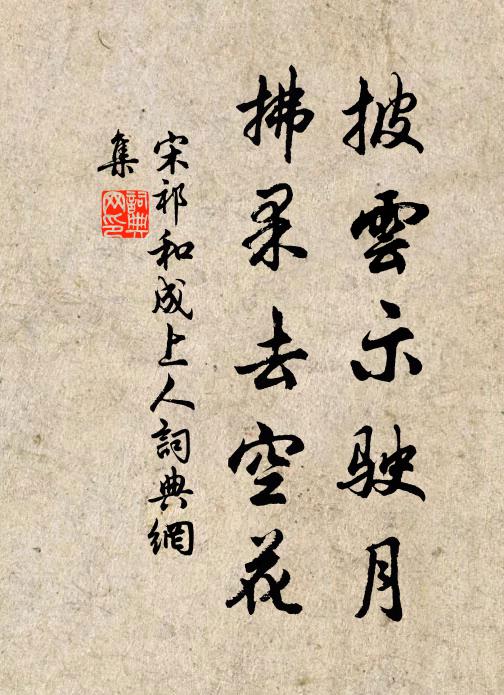 披雲示駛月
拂去空花
宋祁和成上人詞典網
集
詞典
网印